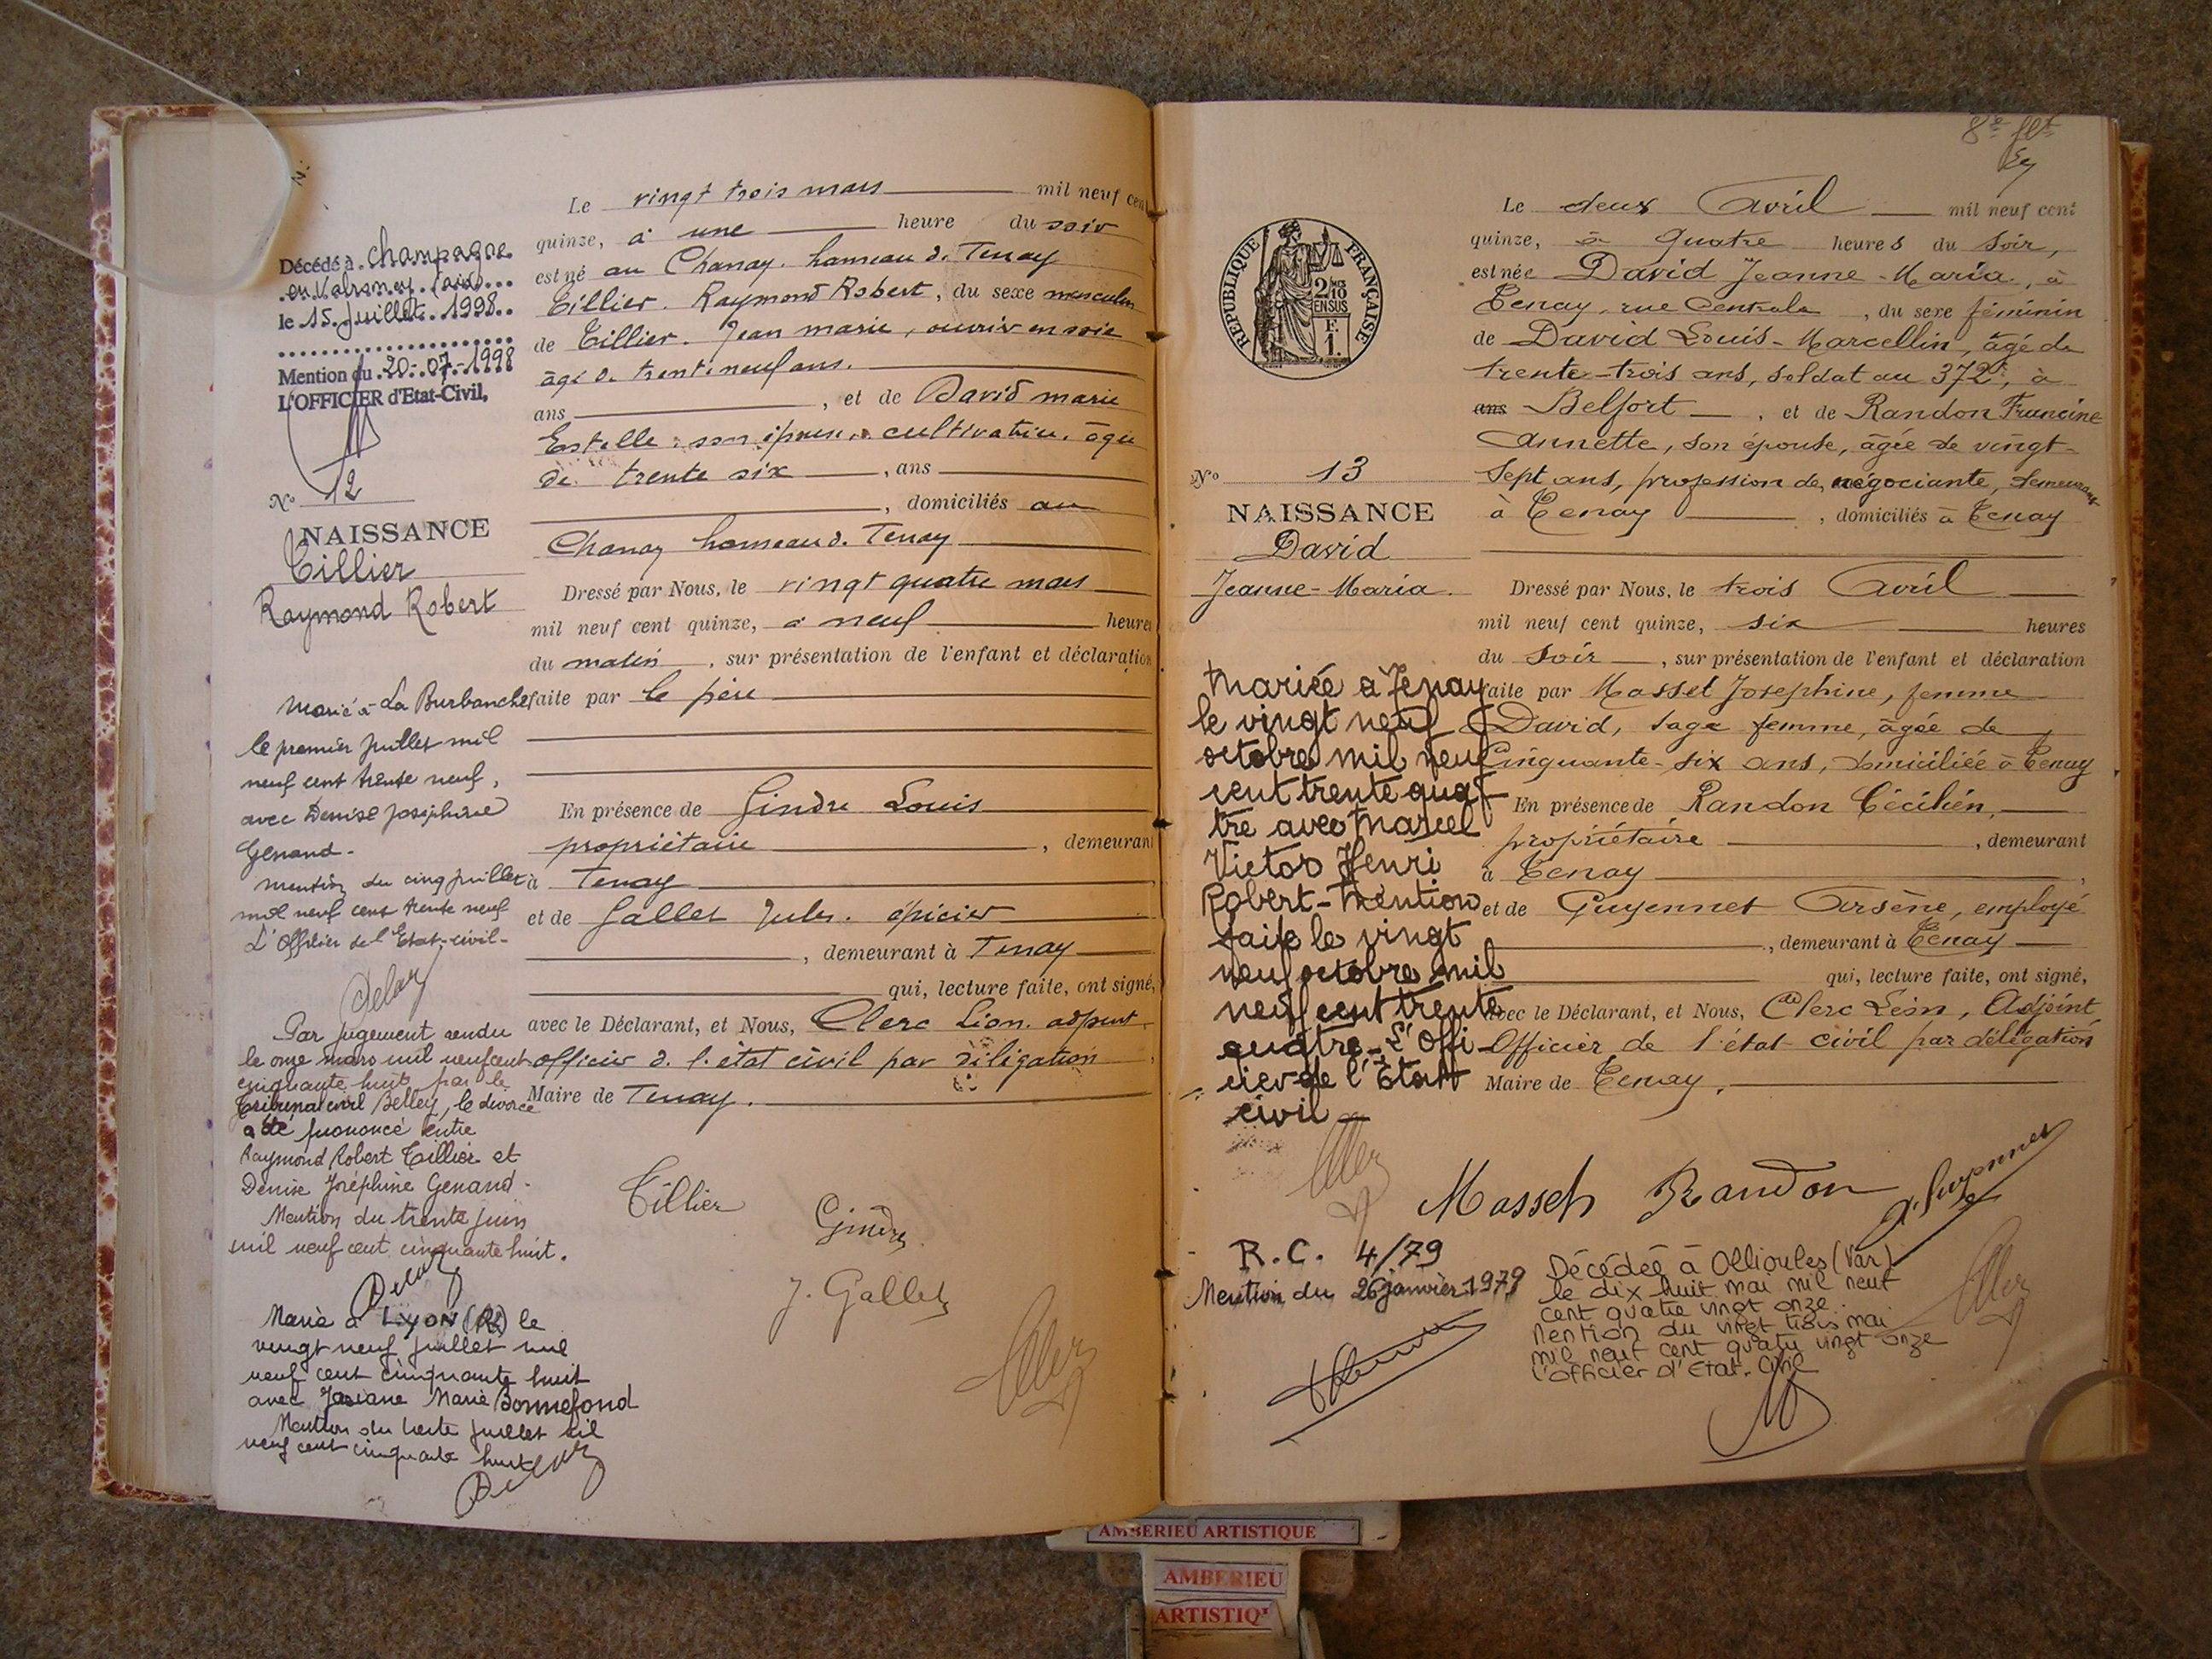 Décédé à Champagne
en Valromey (Ain)
le 15 juillet 1998
Mention du 20-07-1998
L'OFFICIER d'Etat-Civil,
N° 12
NAISSANCE
Tillier
Raymond Robert
Marié à La Burbanche
le premier juillet mil
neuf cent trente neuf,
avec Denise Joséphine
Genand.
Mention du cinq juillet
mil neuf cent trente neuf
L'Officier de l'Etat-civil-
Par jugement rendu
le onze mars mil neuf cent
cinquante huit par le
Tribunal civil Belley, le divorce
a été prononcé entre
Raymond Robert Tillier et
Denise Joséphine Genand.
Mention du trente juin
mil neuf cent cinquante huit.
Marié à Lyon le
vingt neuf juillet mil
neuf cent cinquante huit
avec Josiane Marie Bonnefond
Mention du trente juillet mil
neuf cent cinquante huit
Le vingt trois mars mil neuf cent
quinze, à une heure du soir
est né au Chanay hameau de Tenay
Tillier Raymond Robert, du sexe masculin
de Tillier Jean marie, ouvrier en soie
âgé de trente neuf ans.
ans , et de David marie
Estelle son épouse, cultivatrice, âgée
de trente six , ans
, domiciliés au
Chanay hameau de Tenay
Dressé par Nous, le vingt quatre mars
mil neuf cent quinze, à neuf heures
du matin , sur présentation de l'enfant et déclaration
faite par le père
En présence de Gindre Louis
propriétaire , demeurant
à Tenay
et de Gallet Jules. épicier
, demeurant à Tenay
qui, lecture faite, ont signé,
avec le Déclarant, et Nous, Clerc Léon. adjoint
officier de l'état civil par délégation
Maire de Tenay.
Tillier
Gindre
J. Gallet
REPUBLIQUE FRANÇAISE
2/10
EN SUS
F.
1.
N° 13
NAISSANCE
David
Jeanne-Maria
Mariée à Tenay
le vingt neuf
octobre mil neuf
cent trente qua-
tre avec Marcel
Victor Henri
Robert-Mention
faite le vingt
neuf octobre mil
neuf cent trente
quatre-L'Offi
cier de l'Etat
civil
R.C. 4/79
Mention du 26 janvier 1979
Le deux Avril mil neuf cent
quinze, à quatre heures du soir,
est née David Jeanne-Maria, à
Tenay, rue Centrale , du sexe féminin
de David Louis-Marcellin, âgé de
trente-trois ans, soldat au 372e, à
ans Belfort , et de Randon Francine
Annette, son épouse, âgée de vingt-
sept ans, profession de négociante, demeurant
à Tenay , domiciliés à Tenay
Dressé par Nous, le trois Avril
mil neuf cent quinze, six heures
du soir , sur présentation de l'enfant et déclaration
faite par Masset Josephine, femme
David, sage femme, âgée de
Cinquante-six ans, domiciliée à Tenay
En présence de Randon Cécilien,
propriétaire , demeurant
à Tenay
et de Guyennet Arsène, employé
, demeurant à Tenay
qui, lecture faite, ont signé,
avec le Déclarant, et Nous, Clerc Léon, Adjoint
Officier de l'état civil par délégation
Maire de Tenay,
Masset Randon A. Guyennet
Décédée à Ollioules (Var)
le dix huit mai mil neuf
cent quatre vingt onze.
Mention du vingt trois mai
mil neuf cent quatre vingt onze
L'officier d'Etat-Civil
AMBERIEU ARTISTIQUE
AMBERIEU
ARTISTIQ